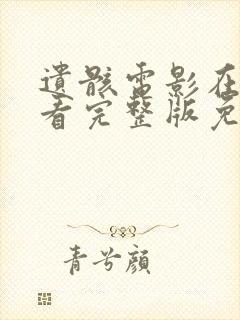 遗骸电影在
看完整版免
青兮颜